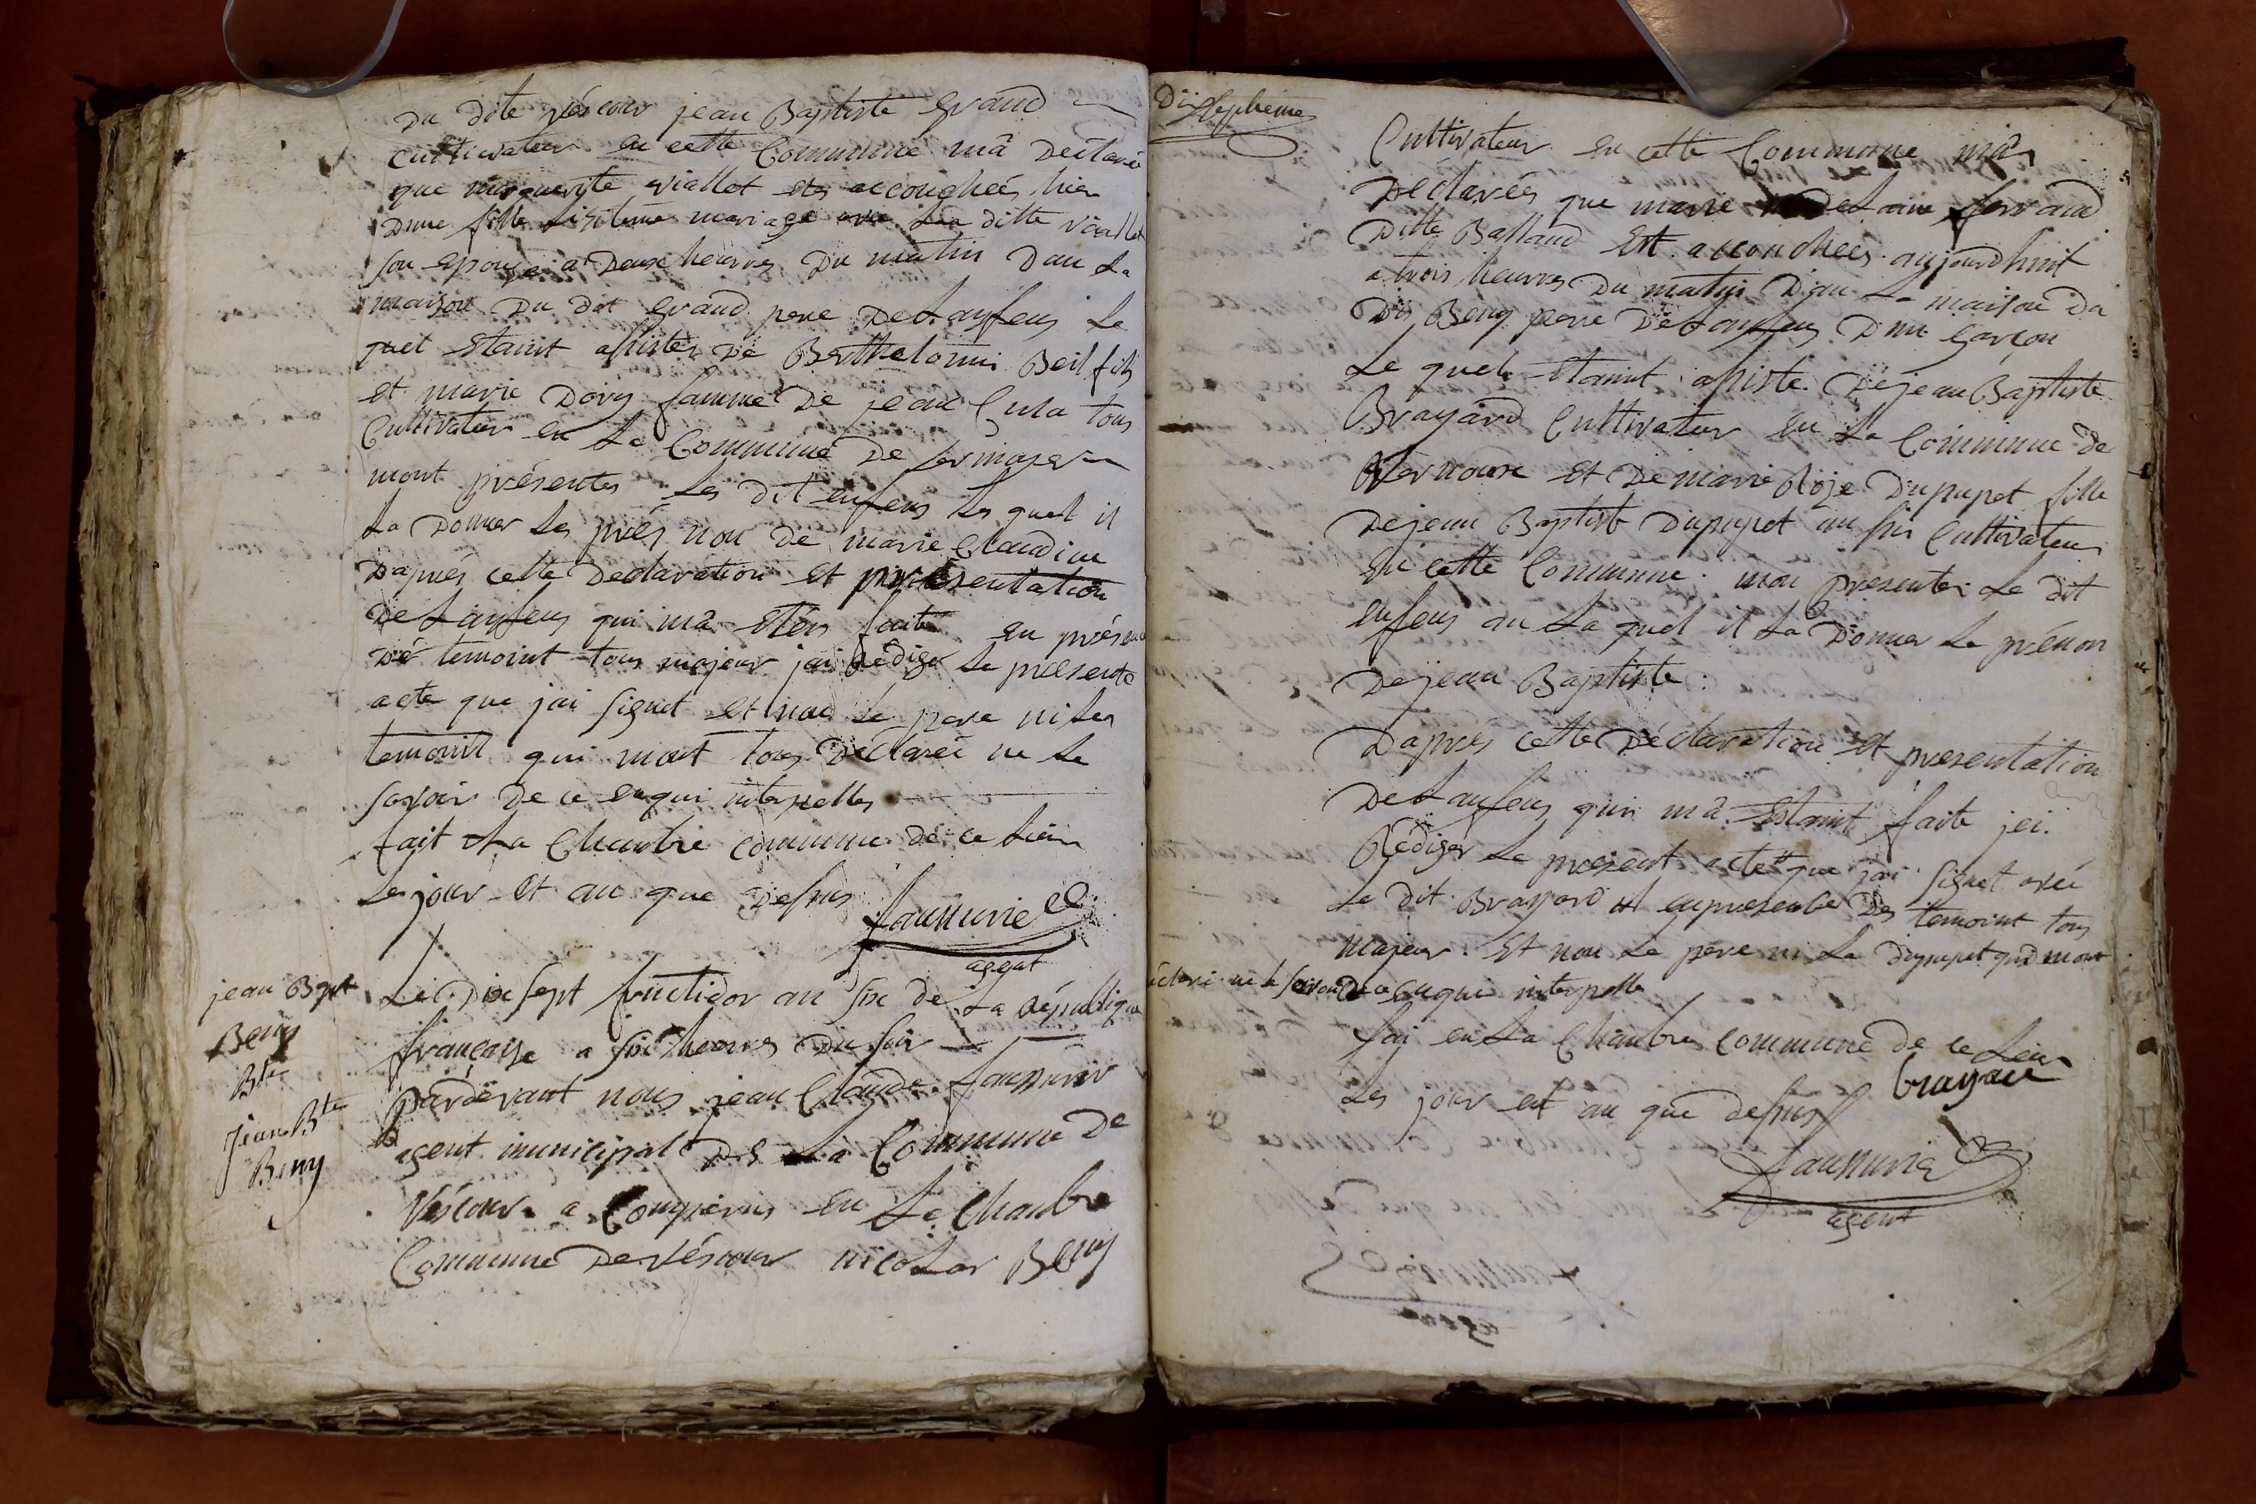 Du dite véscour jean Baptiste Grand
cultivateur en cette Commune mâ Déclaré
que marguerite viallet etes accouchéés hier
Dune fille mariage ditte viallet
son epouse a Deux heures Du matin Dan La
maison Du dit Grand pere De Lanfens Le
quel Etaint assister De Berthelomi Beil fils
et marie Dory famme De jean Cula tous
Cultivateur en La Commune De
mont présenter Les dit enfens Les quel il
La Donner Les prés non De marie Claudine
Daprés cette Declaration et présentation
De Lanfens qui mâ Etés faite en présence
Dé temoint tous majeur jai Rédiger Le presente
acte que jai signet et non Le pere ni Les
temoint qui mont tous Déclaréé ne Le
savoir De ce enqui interpelles
fait La Chambre commune de ce Lieu
Les jour et an que Dessus
faussurie
agent
jean Bapt
Beny
Bte
jean Bte
Beny
Le Dix sept fructidor an six de La Republique
française a six heures Du soir
pardevant nous jean Claude faussurie
agent municipal De La Commune De
Véscour a Comparus en La Chambre
Commune De Véscour nicolas Beny
Dix septieme
Cultivateur en cette Commune mâ
Declaréés que marie ferrand
Ditte Balland Est accouchées aujourdhuit
a trois heures Du matin Dan La maison Du
Dit Beny pere De Lanfens Dun Garçon
Le quel Etaint assiste De jean Baptiste
Brayard Cultivateur en La Commune De
et De marie Roze Dupupet fille
De jean Baptiste Dupupet au sis Cultivateur
en cette Commune mon presenter Le dit
enfens au La quel il La Donner Le prénon
De jean Baptiste
Daprés cette Déclaration et presentation
De Lanfens qui mâ Etaint faite jei
Rédiger Le présent acte que jai signet avéc
Le dit Brayard et enpresente Des temoint tous
majeur et non Le pere ni La Dupupet qui mont
déclaré ne le savoir De ce enqui interpelle
fai en La Chambre Commune de ce Lieu
Les jour et an que dessus
brayard
faussurie
agent